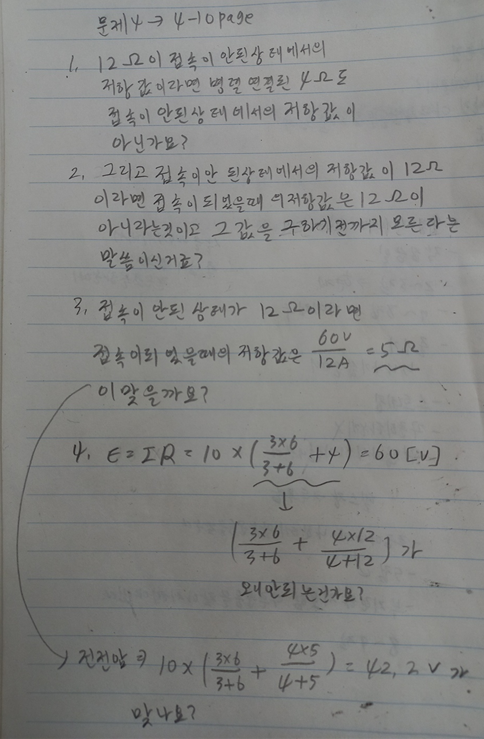 문제4 → 4-10page
1. 12Ω이 접속이 안된상태에서의
저항값이라면 병렬 연결된 4Ω도
접속이 안된상태에서의 저항값이
아닌가요?
2. 그리고 접속이안 된상태에서의 저항값이 12Ω
이라면 접속이 되었을때의저항값은 12Ω이
아니라는것이고 그 값을 구하기전까지 모른다는
말씀이신거죠?
3. 접속이 안된 상태가 12Ω이라면
접속이되 었을때의 저항값은 60V/12A = 5Ω
이 맞을까요?
4. E=IR = 10×(3×6/3+6 +4) = 60[V].
↓
(3×6/3+6 + 4×12/4+12)가
왜 안되는건가요?
전전압⇒ 10×(3×6/3+6 + 4×5/4+5) = 42,2V가
맞나요?